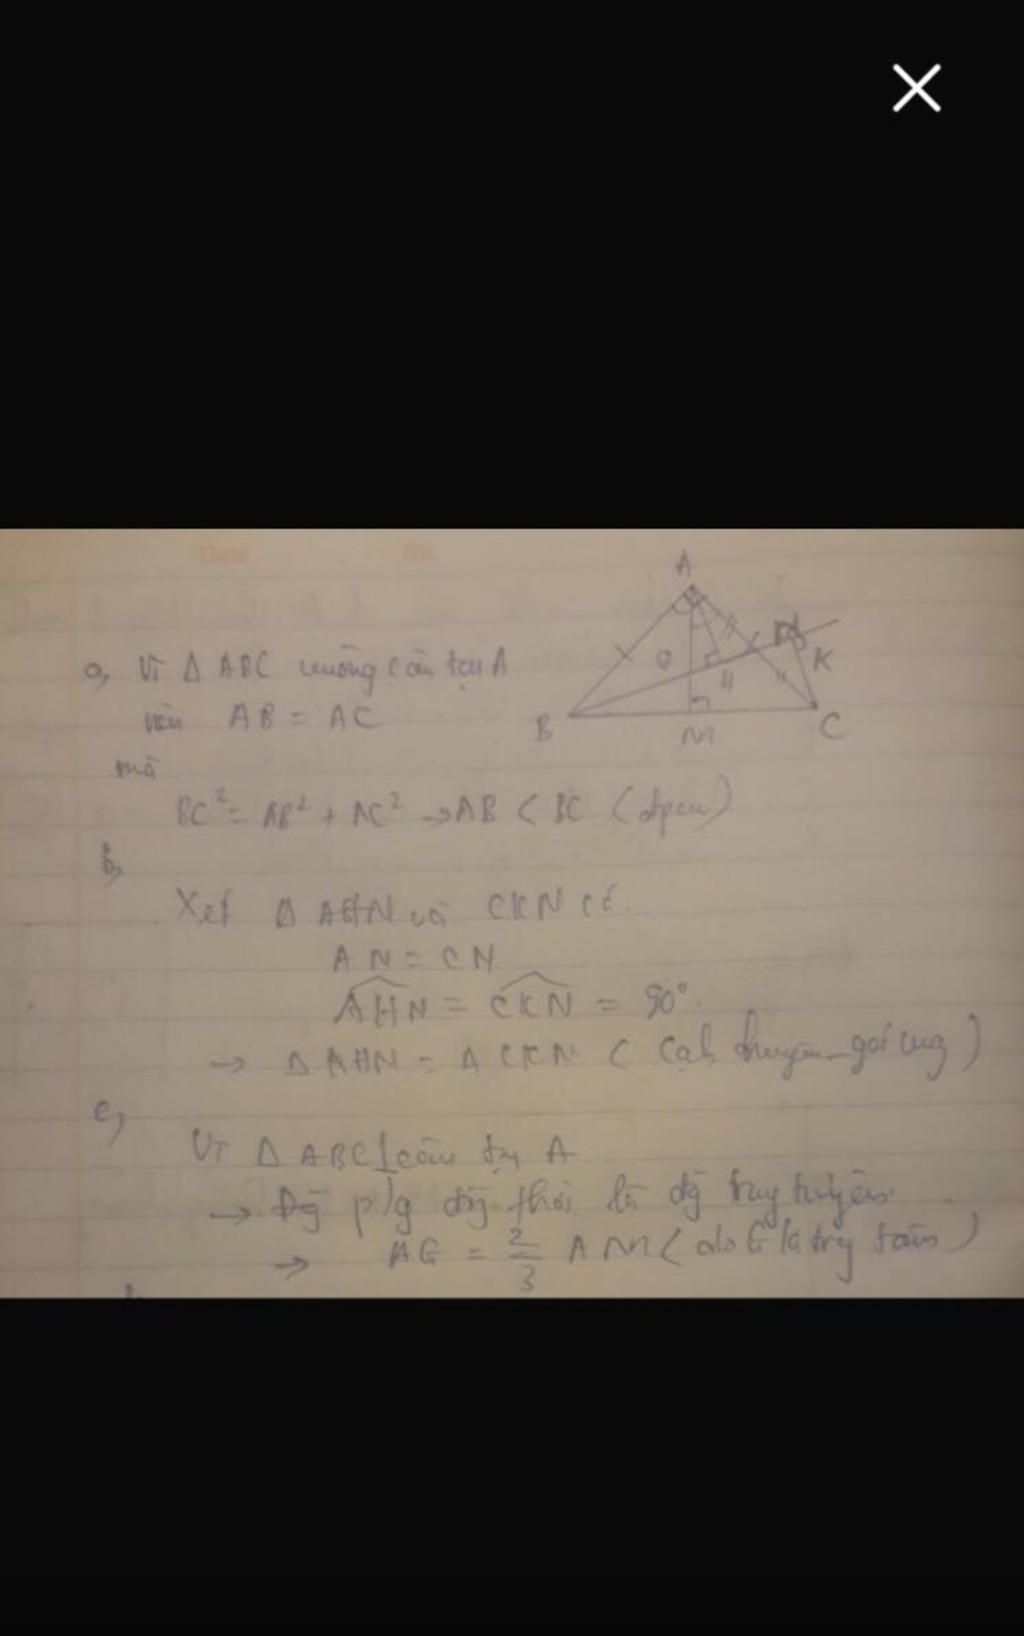 A
a, Vì Δ ABC vuông cân tại A
K
H
nên AB = AC
B
M
C
mà
BC² = AB² + AC² → AB < BC (đpcm)
b,
Xét Δ AHN và CKN có.
AN = CN
AHN = CKN = 90°.
→ Δ AHN = Δ CKN ( Cạh huyền - góc )
c,
Vì Δ ABC ⊥ cân tại A
→ Đg p/g đồg thời là đg trug tuyến.
→ AG = 2/3 AM ( do G là trg tâm )